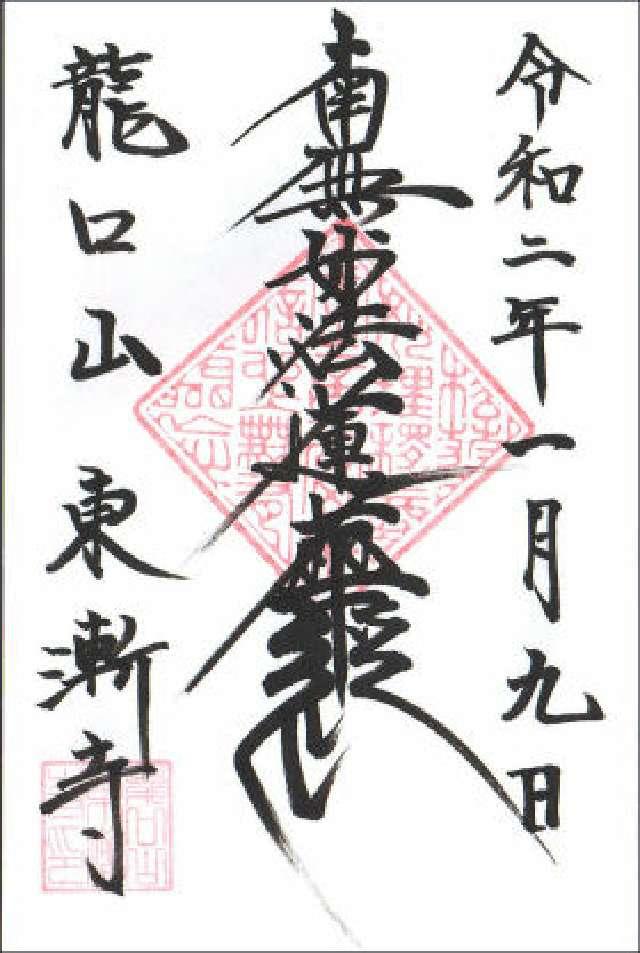 令和二年一月九日
南無妙法蓮華経
龍口山 東漸寺